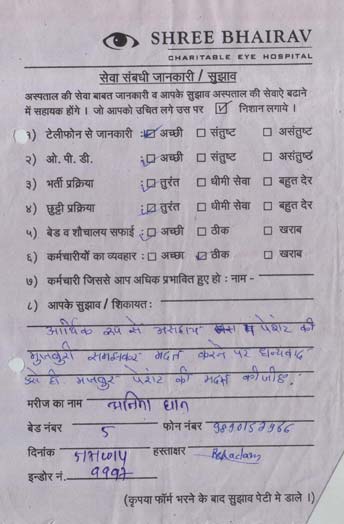 SHREE BHAIRAV
CHARITABLE EYE HOSPITAL
सेवा संबधी जानकारी / सुझाव
अस्पताल की सेवा बाबत जानकारी व आपके सुझाव अस्पताल की सेवाऐ बढाने
में सहायक होंगे । जो आपको उचित लगे उस पर ☑ निशान लगाये ।
१) टेलीफोन से जानकारी : ☑ अच्छी ☐ संतुष्ट ☐ असंतुष्ट
२) ओ. पी. डी. : ☐ अच्छा ☐ संतुष्ट ☐ असंतुष्ठ
३) भर्ती प्रक्रिया : ☐ तुरंत ☐ धीमी सेवा ☐ बहुत देर
४) छुट्टी प्रक्रिया : ☐ तुरंत ☐ धीमी सेवा ☐ बहुत देर
५) बेड व शौचालय सफाई : ☐ अच्छा ☐ ठीक ☐ खराब
६) कर्मचारीयों का व्यवहार : ☐ अच्छा ☐ ठीक ☐ खराब
७) कर्मचारी जिससे आप अधिक प्रभावित हुए हो : नाम -
८) आपके सुझाव / शिकायत :
आर्थिक रूप से असहाय पेशंट की
मजबुरी समझकर मदत करने पर धन्यवाद
ऐसे ही मजबुर पेशंट की मदत कीजीए.
मरीज का नाम
बेड नंबर 5 फोन नंबर
दिनांक 5/7/2014 हस्ताक्षर
इन्डोर नं.
(कृपया फॉर्म भरने के बाद सुझाव पेटी मे डाले ।)